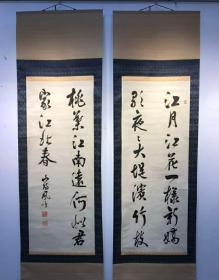 江月江花一樣新嬌
歌夜々大堤濱竹枝
桃葉江南遠何如君
家江北春